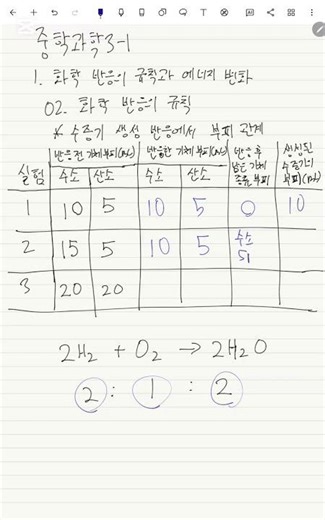 중학과학3-1
1. 화학 반응의 규칙과 에너지 변화
02. 화학 반응의 규칙
* 수증기 생성 반응에서 부피 관계
실험 반응 전 기체 부피(mL) 반응한 기체 부피(mL) 반응 후 남은 기체 종류, 부피 생성된 수증기의 부피(mL)
수소 산소 수소 산소
1 10 5 10 5 0 10
2 15 5 10 5 수소 5
3 20 20
2H₂ + O₂ → 2H₂O
2 : 1 : 2